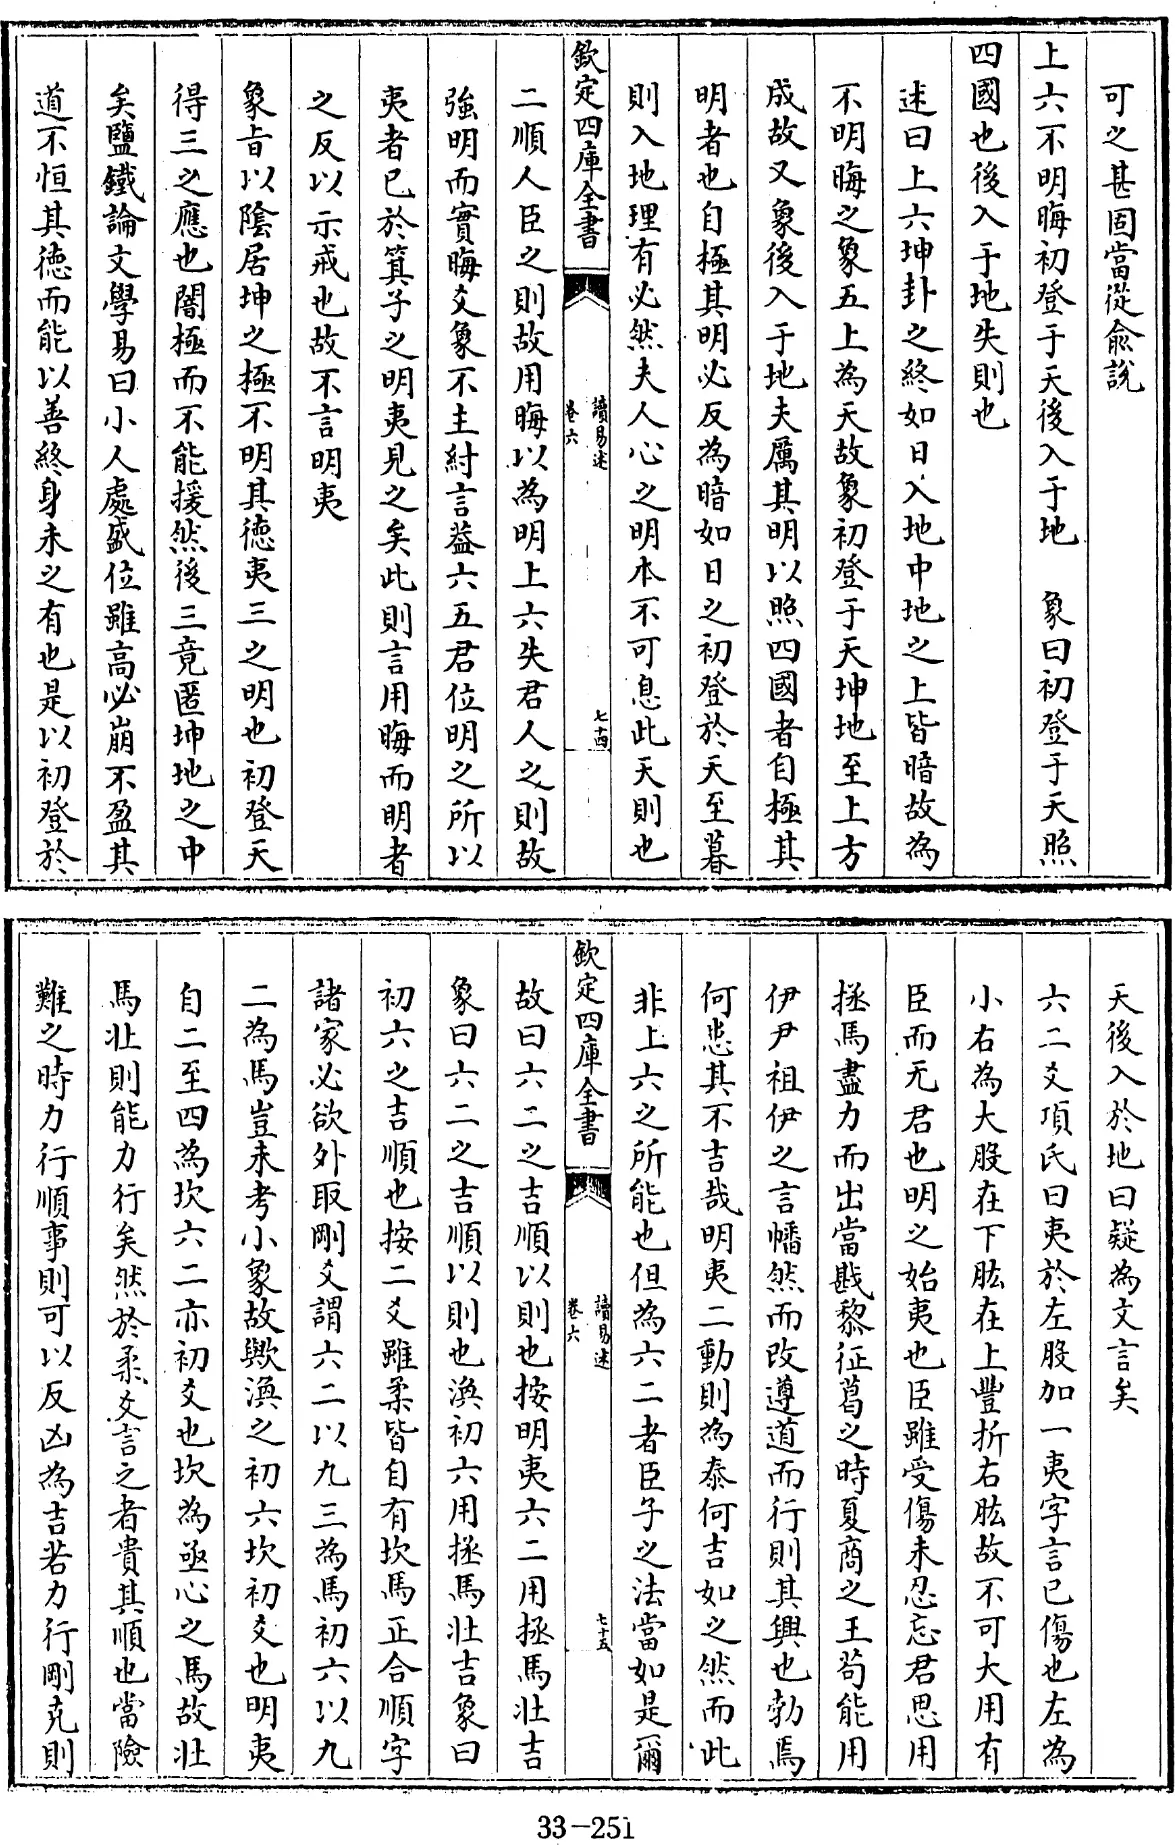 可之甚固當從俞說
上六不明晦初登于天後入于地　象曰初登于天照
四國也後入于地失則也
述曰上六坤卦之終如日入地中地之上皆暗故為
不明晦之象五上為天故象初登于天坤地至上方
成故又象後入于地夫厲其明以照四國者自極其
明者也自極其明必反為暗如日之初登於天至暮
則入地理有必然夫人心之明本不可息此天則也
欽定四庫全書
讀易述
卷六
七十四
二順人臣之則故用晦以為明上六失君人之則故
強明而實晦爻象不主紂言益六五君位明之所以
夷者已於箕子之明夷見之矣此則言用晦而明者
之反以示戒也故不言明夷
象旨以陰居坤之極不明其德夷三之明也初登天
得三之應也闇極而不能援然後三竟匿坤地之中
矣鹽鐵論文學易曰小人處盛位雖高必崩不盈其
道不恒其德而能以善終身未之有也是以初登於
天後入於地曰疑為文言矣
六二爻項氏曰夷於左股加一夷字言已傷也左為
小右為大股在下肱在上豐折右肱故不可大用有
臣而无君也明之始夷也臣雖受傷未忍忘君思用
拯馬盡力而出當戡黎征葛之時夏商之王苟能用
伊尹祖伊之言幡然而改遵道而行則其興也勃焉
何患其不吉哉明夷二動則為泰何吉如之然而此
非上六之所能也但為六二者臣子之法當如是爾
欽定四庫全書
讀易述
卷六
七十五
故曰六二之吉順以則也按明夷六二用拯馬壯吉
象曰六二之吉順以則也渙初六用拯馬壯吉象曰
初六之吉順也按二爻雖柔皆自有坎馬正合順字
諸家必欲外取剛爻謂六二以九三為馬初六以九
二為馬豈未考小象故歟渙之初六坎初爻也明夷
自二至四為坎六二亦初爻也坎為亟心之馬故壯
馬壯則能力行矣然於柔爻言之者貴其順也當險
難之時力行順事則可以反凶為吉若力行剛克則
33-251